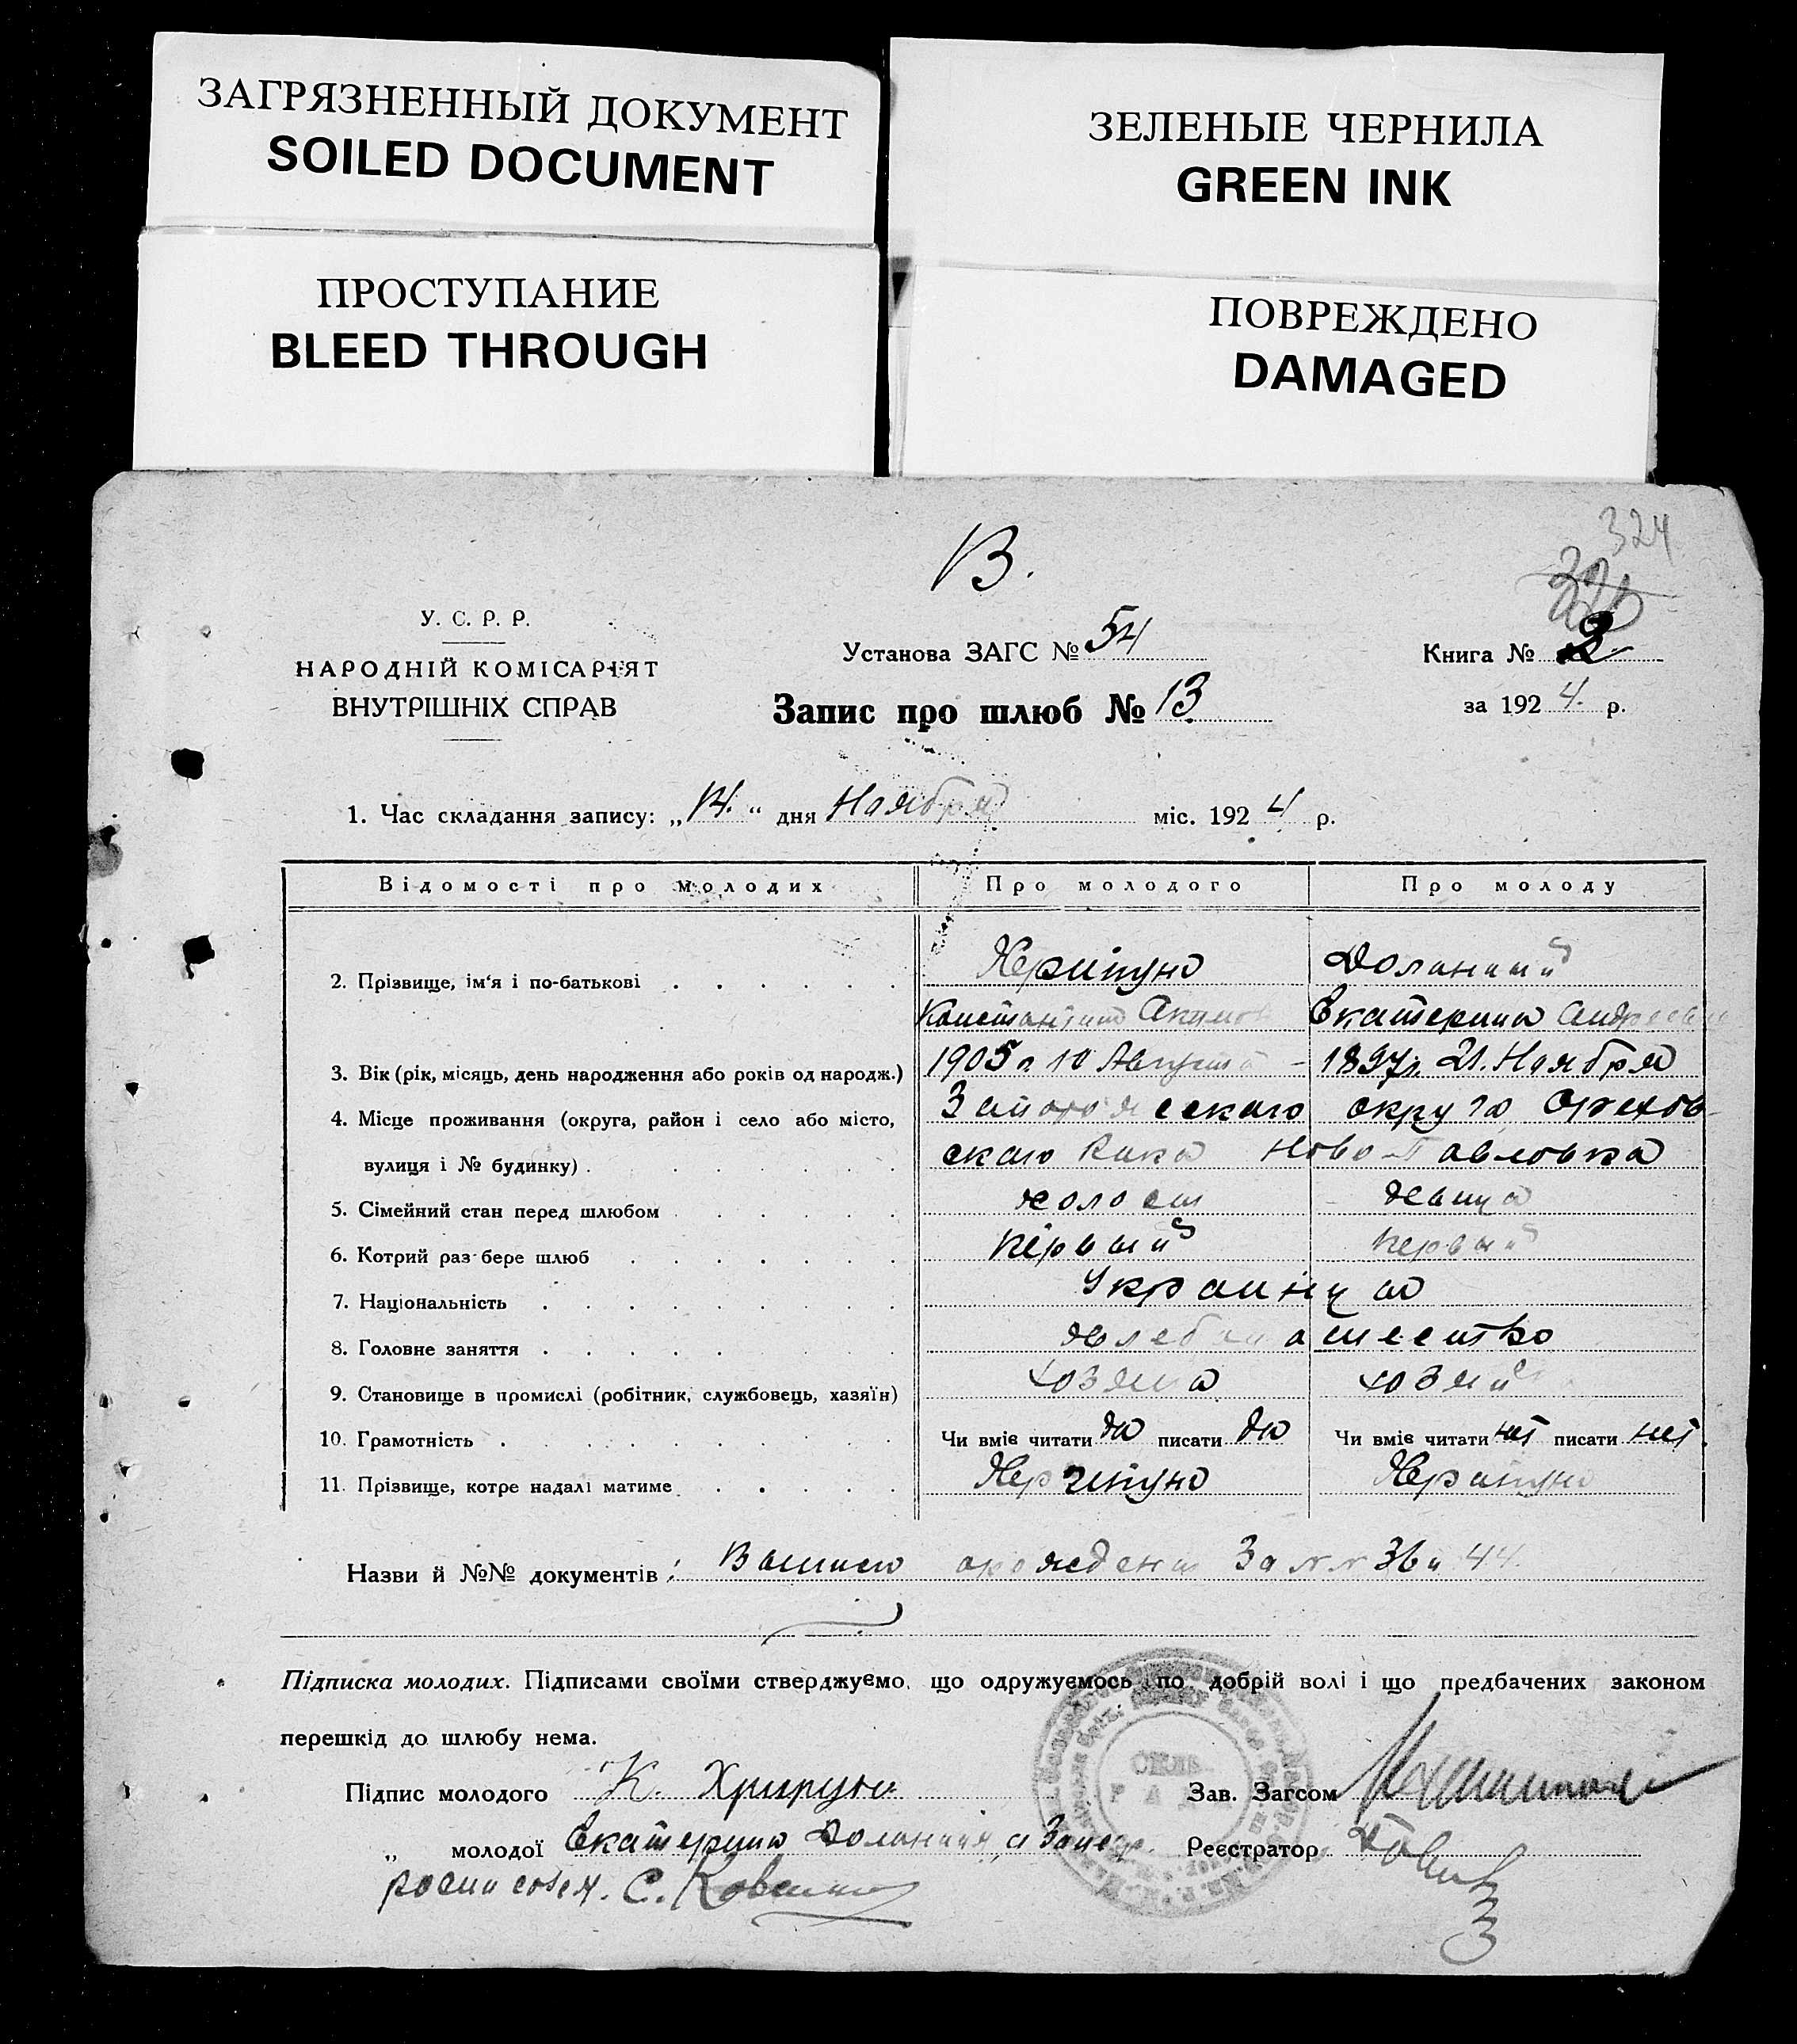 ЗАГРЯЗНЕННЫЙ ДОКУМЕНТ
SOILED DOCUMENT
ЗЕЛЕНЫЕ ЧЕРНИЛА
GREEN INK
ПРОСТУПАНИЕ
BLEED THROUGH
ПОВРЕЖДЕНО
DAMAGED
324
В.
У. С. Р. Р.
НАРОДНІЙ КОМІСАРІЯТ
ВНУТРІШНІХ СПРАВ
Установа ЗАГС № 54
Запис про шлюб № 13
Книга № 2
за 1924 р.
1. Час складання запису: „14." дня Ноября міс. 1924 р.
Відомості про молодих Про молодого Про молоду
2. Прізвище, ім'я і по-батькові
Константин Акимов Екатерина Андреевна
3. Вік (рік, місяць, день народження або років од народж.) 1905 г 10 Августа - 1897г. 21. Ноября
4. Місце проживання (округа, район і село або місто, Запорожескаго округа Орехов-
вулиця і № будинку) скаго Ново-Павловка
5. Сімейний стан перед шлюбом холост девица
6. Котрий раз бере шлюб первый первый
7. Національність Украинца
8. Головне заняття хлебопашество
9. Становище в промислі (робітник, службовець, хазяїн)
10. Грамотність Чи вміє читати да писати да Чи вміє читати нет писати нет.
11. Прізвище, котре надалі матиме
Назви й №№ документів: 36 и 44.
Підписка молодих. Підписами своїми стверджуємо, що одружуємось по добрій волі і що предбачених законом
перешкід до шлюбу нема.
Підпис молодого К. Зав. Загсом
„ молодої Екатерина Реєстратор
С.